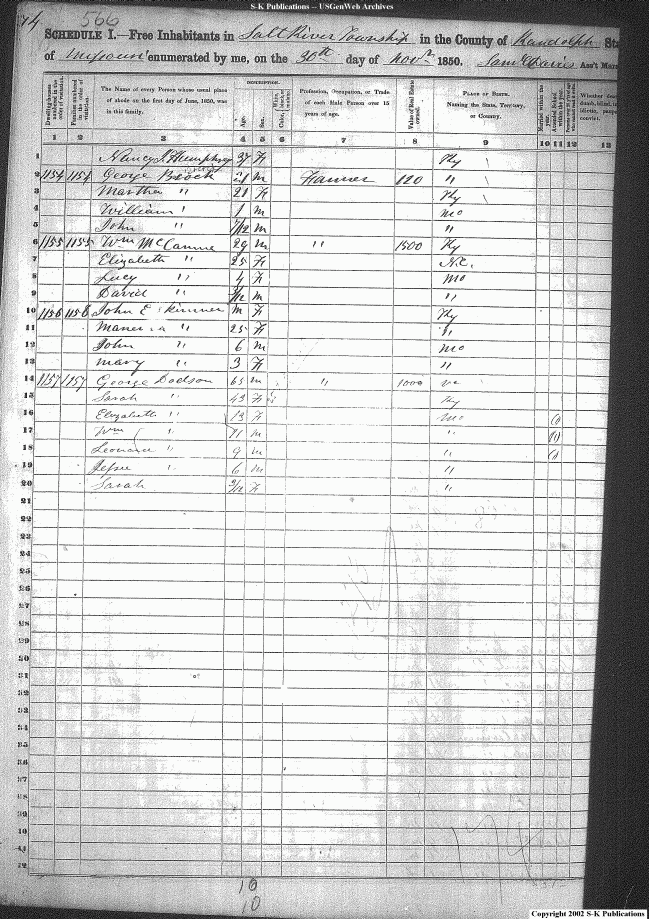 S-K Publications -- USGenWeb Archives
74
566
SCHEDULE I.—Free Inhabitants in Salt River Township in the County of Randolph Sta
of Missouri enumerated by me, on the 30th day of Novr 1850. Saml Davis Ass't Mars
Dwelling-houses numbered in the order of visitation.
Families numbered in the order of visitation.
The Name of every Person whose usual place of abode on the first day of June, 1850, was in this family.
DESCRIPTION.
Age.
Sex.
Color,
Profession, Occupation, or Trade of each Male Person over 15 years of age.
Value of Real Estate owned.
PLACE OF BIRTH. Naming the State, Territory, or Country.
Married within the year.
Whether deaf
1 2 3 4 5 6 7 8 9 10 11 12 13
1 Nancy J Humphrey 37 F Ky
2 1154 1154 George Brock 21 M Farmer 120 "
3 Martha " 21 F Ky
4 William " 1 M Mo
5 John " 7/12 M "
6 1155 1155 Wm McCanne 29 M " 1500 Ky
7 Elizabeth " 25 F N.C.
8 Lucy " 4 F Mo
9 David " /12 M "
10 1156 1156 John E Skinner M F Ky
11 " 25 F "
12 John " 6 M Mo
13 Mary " 3 F "
14 1157 1157 George Dodson 65 M " 1000 Va
15 Sarah " 43 F Ky
16 Elizabeth " 13 F Mo
17 Wm " 11 M "
18 Leonard " 9 M "
19 Jesse " 6 M "
20 Sarah 9/12 F "
21
22
23
24
25
26
27
28
29
30
31
32
33
34
35
36
37
38
39
40
41
42
10
10
Copyright 2002 S-K Publications